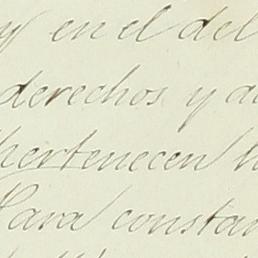 y en el del
derechos y a
pertenecen
Para constan